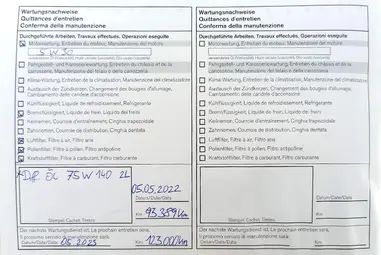 Wartungsnachweise
Quittances d'entretien
Conferma della manutenzione
Durchgeführte Arbeiten, Travaux effectués, Operazioni eseguite
Motorwartung, Entretien du moteur, Manutenzione del motore
5W30
Fahrgestell- und Karosseriewartung, Entretien du châssis et de la
carrosserie, Manutenzione del telaio e della carrozzeria
Klima-Wartung, Entretien de climatisation, Manutenzione del climatizzatore
Austausch der Zündkerzen, Changement des bougies d'allumage,
Cambiamento delle candele d'accensione
Kühlflüssigkeit, Liquide de refroidissement, Refrigerante
Bremsflüssigkeit, Liquide de frein, Liquido dei freni
Keilriemen, Courroie d'entraînement, Cinghia trapezoidale
Zahnriemen, Courroie de distribution, Cinghia dentata
Luftfilter, Filtre à air, Filtro aria
Pollenfilter, Filtre à pollen, Filtro antipolline
Kraftstofffilter, Filtre à carburant, Filtro carburante
Diff ÖL 75W140 2L
05.05.2022
Datum/Date/Data
Km 93'359 km
Stempel, Cachet, Timbro
Der nächste Wartungsdienst ist, Le prochain entretien sera,
Il prossimo servizio di manutenzione sarà
05.2023
Km 123'000 km
Datum/Date/Data
Wartungsnachweise
Quittances d'entretien
Conferma della manutenzione
Durchgeführte Arbeiten, Travaux effectués, Operazioni eseguite
Motorwartung, Entretien du moteur, Manutenzione del motore
Fahrgestell- und Karosseriewartung, Entretien du châssis et de la
carrosserie, Manutenzione del telaio e della carrozzeria
Klima-Wartung, Entretien de climatisation, Manutenzione del climatizzatore
Austausch der Zündkerzen, Changement des bougies d'allumage,
Cambiamento delle candele d'accensione
Kühlflüssigkeit, Liquide de refroidissement, Refrigerante
Bremsflüssigkeit, Liquide de frein, Liquido dei freni
Keilriemen, Courroie d'entraînement, Cinghia trapezoidale
Zahnriemen, Courroie de distribution, Cinghia dentata
Luftfilter, Filtre à air, Filtro aria
Pollenfilter, Filtre à pollen, Filtro antipolline
Kraftstofffilter, Filtre à carburant, Filtro carburante
Datum/Date/Data
Km
Stempel, Cachet, Timbro
Der nächste Wartungsdienst ist, Le prochain entretien sera,
Il prossimo servizio di manutenzione sarà
Km
Datum/Date/Data